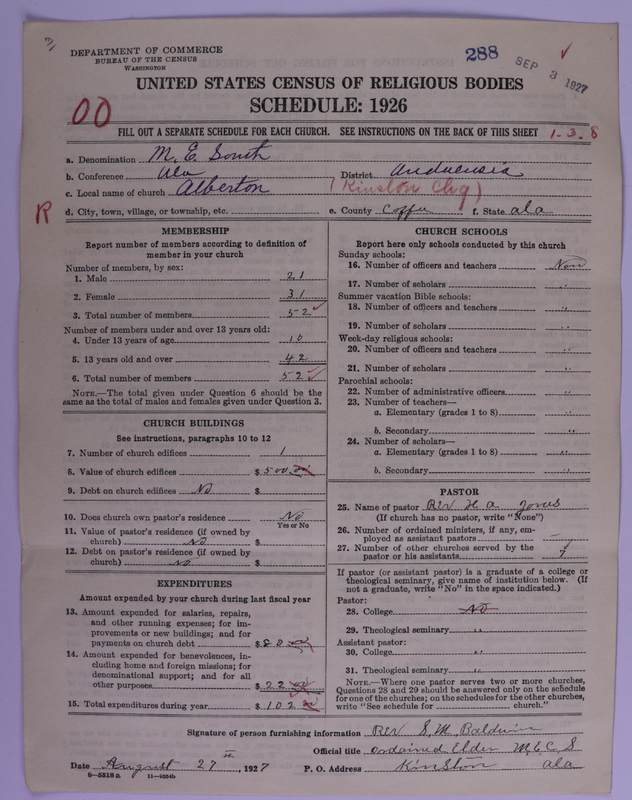 DEPARTMENT OF COMMERCE
BUREAU OF THE CENSUS
WASHINGTON
288
SEP 3 1927
UNITED STATES CENSUS OF RELIGIOUS BODIES
SCHEDULE: 1926
00
FILL OUT A SEPARATE SCHEDULE FOR EACH CHURCH. SEE INSTRUCTIONS ON THE BACK OF THIS SHEET 1-3-8
a. Denomination M. E. South
b. Conference Ala District Andalusia
c. Local name of church Alberton (Kinston Chg)
R
d. City, town, village, or township, etc. e. County Coffee f. State Ala
MEMBERSHIP
Report number of members according to definition of
member in your church
Number of members, by sex:
1. Male 21
2. Female 31
3. Total number of members 52
Number of members under and over 13 years old:
4. Under 13 years of age 10
5. 13 years old and over 42
6. Total number of members 52
NOTE.—The total given under Question 6 should be the
same as the total of males and females given under Question 3.
CHURCH BUILDINGS
See instructions, paragraphs 10 to 12
7. Number of church edifices 1
8. Value of church edifices $ 500 00
9. Debt on church edifices No $
10. Does church own pastor's residence No
Yes or No
11. Value of pastor's residence (if owned by
church) No $
12. Debt on pastor's residence (if owned by
church) No $
EXPENDITURES
Amount expended by your church during last fiscal year
13. Amount expended for salaries, repairs,
and other running expenses; for im-
provements or new buildings; and for
payments on church debt $ 80 00
14. Amount expended for benevolences, in-
cluding home and foreign missions; for
denominational support; and for all
other purposes $ 22 00
15. Total expenditures during year $ 102 00
CHURCH SCHOOLS
Report here only schools conducted by this church
Sunday schools:
16. Number of officers and teachers None
17. Number of scholars "
Summer vacation Bible schools:
18. Number of officers and teachers "
19. Number of scholars "
Week-day religious schools:
20. Number of officers and teachers "
21. Number of scholars "
Parochial schools:
22. Number of administrative officers "
23. Number of teachers—
a. Elementary (grades 1 to 8) "
b. Secondary "
24. Number of scholars—
a. Elementary (grades 1 to 8) "
b. Secondary "
PASTOR
25. Name of pastor Rev H. A. Jones
(If church has no pastor, write "None")
26. Number of ordained ministers, if any, em-
ployed as assistant pastors —
27. Number of other churches served by the
pastor or his assistants
If pastor (or assistant pastor) is a graduate of a college or
theological seminary, give name of institution below. (If
not a graduate, write "No" in the space indicated.)
Pastor:
28. College No
29. Theological seminary "
Assistant pastor:
30. College "
31. Theological seminary "
NOTE.—Where one pastor serves two or more churches,
Questions 28 and 29 should be answered only on the schedule
for one of the churches; on the schedules for the other churches,
write "See schedule for church."
Signature of person furnishing information Rev S. M. Baldwin
Official title Ordained Elder M. E. C. S
Date August 27th, 1927 P. O. Address Kinston Ala
8—5518 a 11—9054b